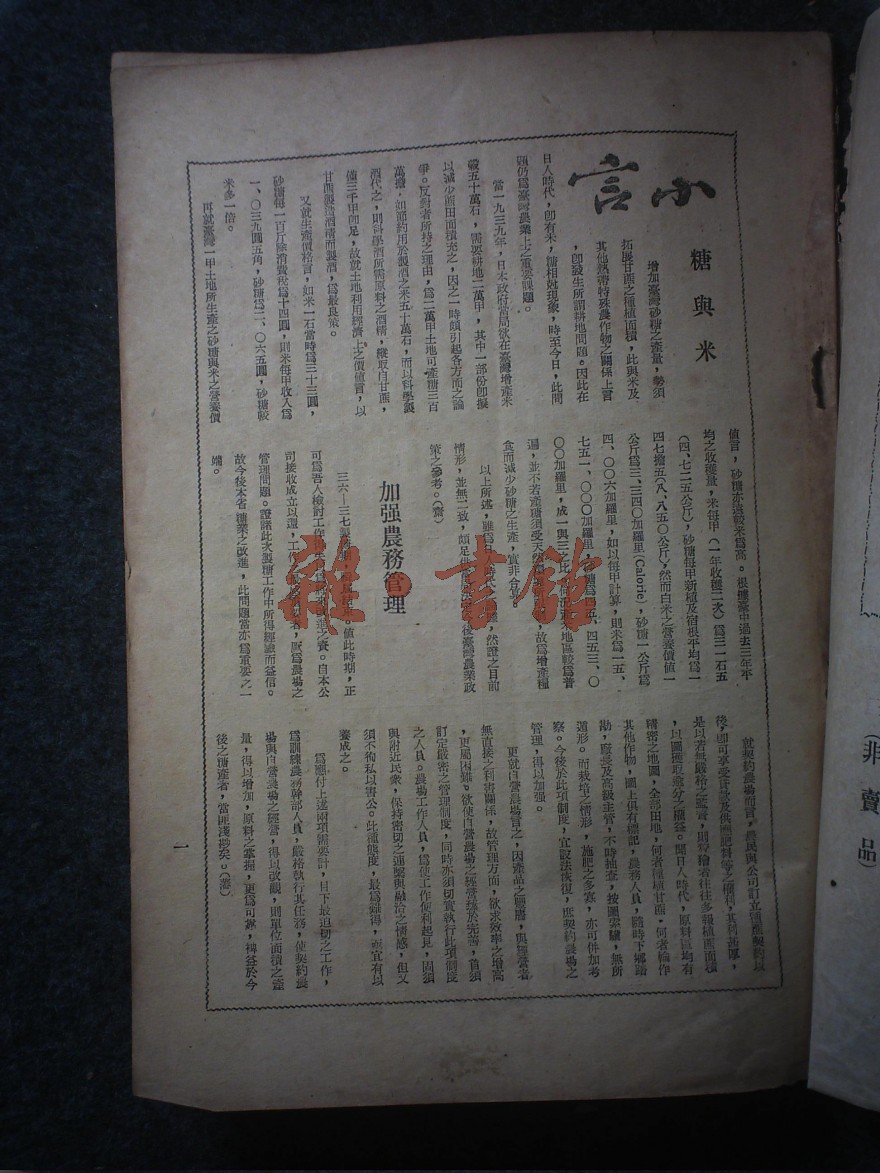 小言
糖與米
增加臺灣砂糖之產量,勢須
拓展甘蔗之種植面積,此與米及
其他熱帶特殊農作物之關係上言
,卽發生所謂耕地問題。因此在
日人時代,卽有米,糖相尅現象,時至今日,此問
題仍為臺灣農業上之重要課題。
當一九三九年,日本政府當局欲在臺灣增產米
穀五十萬石,需要耕地二萬甲,其中一部份卽擬
以減少蔗田面積充之,因之一時頗引起各方面之論
爭。反對者所持之理由,為二萬甲土地可產糖三百
萬擔,如節約用於製酒之米五十萬石,而以科學製
酒代之,則科學酒所需原料之酒精,縱取自甘蔗,
僅三千甲卽足,故就土地利用經濟上之價值言,以
甘蔗製造酒精而製酒,為最良策。
又就生產價格言,如米一石當時為三十三圓,
砂糖每一百斤除消費稅為十四圓,則米每甲收入為
一、〇三九圓五角,砂糖為二、〇六五圓,砂糖較
米多一倍。
再就臺灣一甲土地所生產之砂糖與米之營養價
值言,砂糖亦遠較米為高。根據臺中過去三年平
均之收穫量,米每甲(一年收穫二次)為三一石五
(四、七二五公斤),砂糖每甲新植及宿根平均為一
四七擔五(八、八五〇公斤),然而白米之營養價值一
公斤為三、三四〇加羅里(Calorie),砂糖一公斤為
四、〇〇六加羅里,如以每甲計算,則米為一五、
七五一、〇〇〇加羅里,糖為四五、四五三、〇
〇〇加羅里,成一與三之比,
遍,並不若產糖須受天然,故為增產糧
食而減少砂糖之生產,實非合算。
以上所述,雖為,然證之目前
情形,並無二致,頗足供後臺灣農業政
策之參考。(齋)
加强農務管理
三六—三七製,值此時期,正
可為吾人檢討工作,之資。自本公
司接收成立以還,工作,厥為農場之
管理問題。證諸此次製糖工作中所得經驗而益信。
故今後本省糖業之改進,此問題當亦為重要之一
端。
就契約農場而言,農民與公司訂立種蔗契約以
後,卽可享受貸款及供應肥料等之權利,其利甚厚,
是以若無嚴格之監督,則狡獪者往往多報植蔗面積
,以圖獲取過分之權益。聞日人時代,原料區均有
精密之地圖,全部田地,何者種植甘蔗,何者輪作
其他作物,圖上俱有標記,農務人員,隨時下鄉踏
勘,廠長及高級主管,不時抽查,按圖索驥,無所
遁形。而栽培之情形,施肥之多寡,亦可併加考
察。今後於此項制度,宜設法恢復,庶契約農場之
管理,得以加强。
更就自營農場言之,因產品之豐嗇,與經營者
無直接之利害關係,故管理方面,欲求效率之增高
,更屬困難。欲使自營農場之經營臻於完善,首須
訂定嚴密之管理制度,同時亦須切實執行此項制度
之人員。農場工作人員,為使工作便利起見,固須
與附近民衆,保持密切之連繫與融洽之情感,但又
須不徇私以害公。此種態度,最為難得,亟宜有以
養成之。
為應付上述兩項需要計,目下最迫切之工作,
為訓練農務幹部人員,嚴格執行其任務,使契約農
場與自營農場之經營,得以改觀,則單位面積之產
量,得以增加,原料之掌握,更為可靠,裨益於今
後之糖產者,當匪淺尠矣。(蕃)
一
(非賣品)
雜·書館